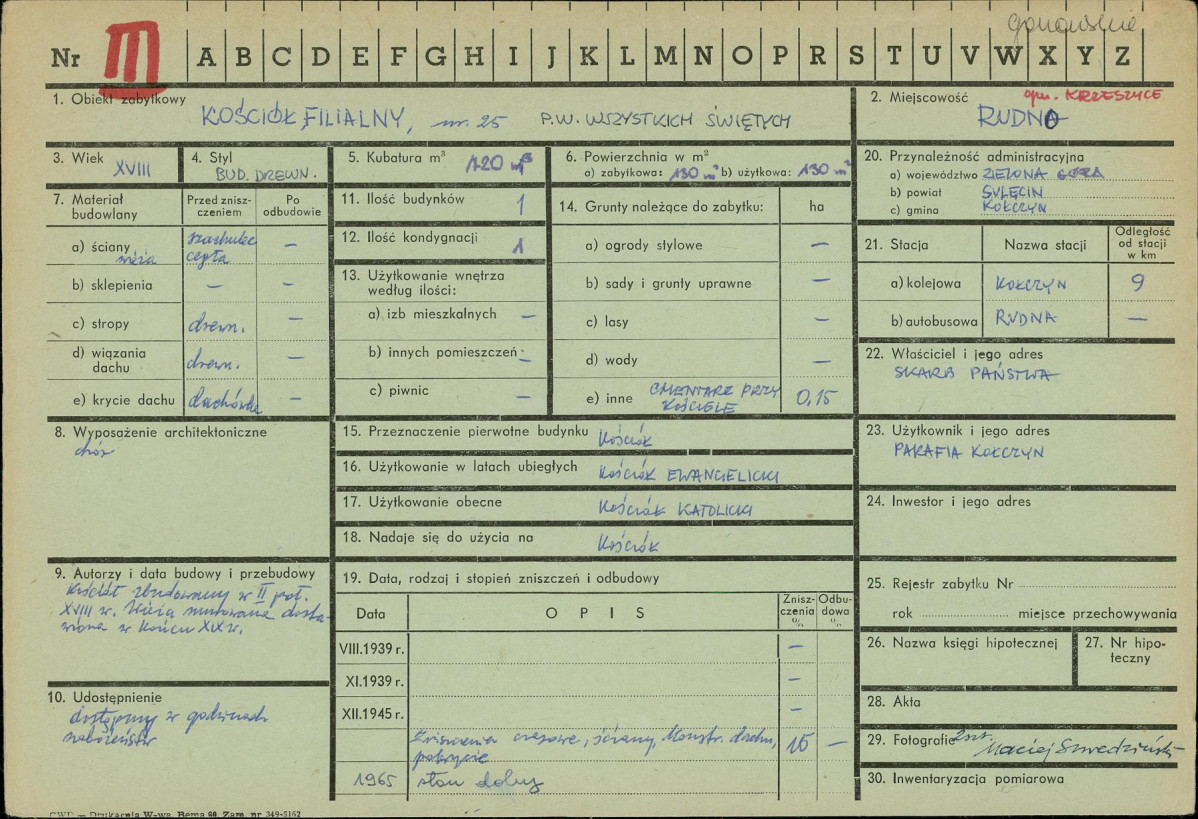 Nr III A B C D E F G H I J K L M N O P R S T U V W X Y Z
1. Obiekt zabytkowy
KOŚCIÓŁ FILIALNY, nr. 25 P.W. WSZYSTKICH ŚWIĘTYCH
2. Miejscowość
gm. KRZESZYCE
RUDNA
3. Wiek
XVIII
4. Styl
BUD. DREWN.
5. Kubatura m³ 720 m³
6. Powierzchnia w m²
a) zabytkowa: 130 m² b) użytkowa: 130 m²
7. Materiał budowlany
Przed zniszczeniem
Po odbudowie
a) ściany szachulec —
wieża cegła
b) sklepienia — —
c) stropy drewn. —
d) wiązania dachu drewn. —
e) krycie dachu dachówka —
8. Wyposażenie architektoniczne
chór
9. Autorzy i data budowy i przebudowy
Kościół zbudowany w II poł.
XVIII w. Wieża murowana dosta-
wiona w końcu XIX w.
10. Udostępnienie
dostępny w godzinach
nabożeństw
11. Ilość budynków 1
12. Ilość kondygnacji 1
13. Użytkowanie wnętrza
według ilości:
a) izb mieszkalnych —
b) innych pomieszczeń —
c) piwnic —
14. Grunty należące do zabytku: ha
a) ogrody stylowe —
b) sady i grunty uprawne —
c) lasy —
d) wody —
e) inne CMENTARZ PRZY KOŚCIELE 0,15
15. Przeznaczenie pierwotne budynku Kościół
16. Użytkowanie w latach ubiegłych Kościół EWANGELICKI
17. Użytkowanie obecne Kościół KATOLICKI
18. Nadaje się do użycia na Kościół
19. Data, rodzaj i stopień zniszczeń i odbudowy
Data OPIS Zniszczenia % Odbudowa %
VIII.1939 r. —
XI.1939 r. —
XII.1945 r. —
Zniszczenia czasowe, ściany, konstr. dachu, 15 —
pokrycie
1965 stan dobry
20. Przynależność administracyjna
a) województwo ZIELONA GÓRA
b) powiat SULĘCIN
c) gmina KOŁCZYN
21. Stacja Nazwa stacji Odległość od stacji w km
a) kolejowa KOŁCZYN 9
b) autobusowa RUDNA —
22. Właściciel i jego adres
SKARB PAŃSTWA
23. Użytkownik i jego adres
PARAFIA KOŁCZYN
24. Inwestor i jego adres
25. Rejestr zabytku Nr
rok miejsce przechowywania
26. Nazwa księgi hipotecznej
27. Nr hipo-
teczny
28. Akta
29. Fotografie 2 szt. Maciej Szwedziński
30. Inwentaryzacja pomiarowa
CWD — Drukarnia W-wa, Bema 60, Zam. nr 349-5162